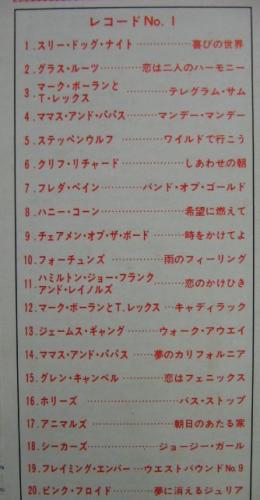 レコードNo. 1
1.スリー・ドッグ・ナイト…………喜びの世界
2.グラス・ルーツ…………恋は二人のハーモニー
3.マーク・ボーランと
T・レックス…………テレグラム・サム
4.ママス・アンド・パパス……マンデー・マンデー
5.ステッペンウルフ……ワイルドで行こう
6.クリフ・リチャード…………しあわせの朝
7.フレダ・ペイン………バンド・オブ・ゴールド
8.ハニー・コーン…………希望に燃えて
9.チェアメン・オブ・ザ・ボード……時をかけてよ
10.フォーチュンズ…………雨のフィーリング
11.ハミルトン・ジョー・フランク
アンド・レイノルズ…………恋のかけひき
12.マーク・ボーランとT.レックス…キャディラック
13.ジェームス・ギャング………ウォーク・アウェイ
14.ママス・アンド・パパス……夢のカリフォルニア
15.グレン・キャンベル…………恋はフェニックス
16.ホリーズ…………バス・ストップ
17.アニマルズ…………朝日のあたる家
18.シーカーズ…………ジョージー・ガール
19.フレイミング・エンバー……ウエストバウンドNo.9
20.ピンク・フロイド………夢に消えるジュリア